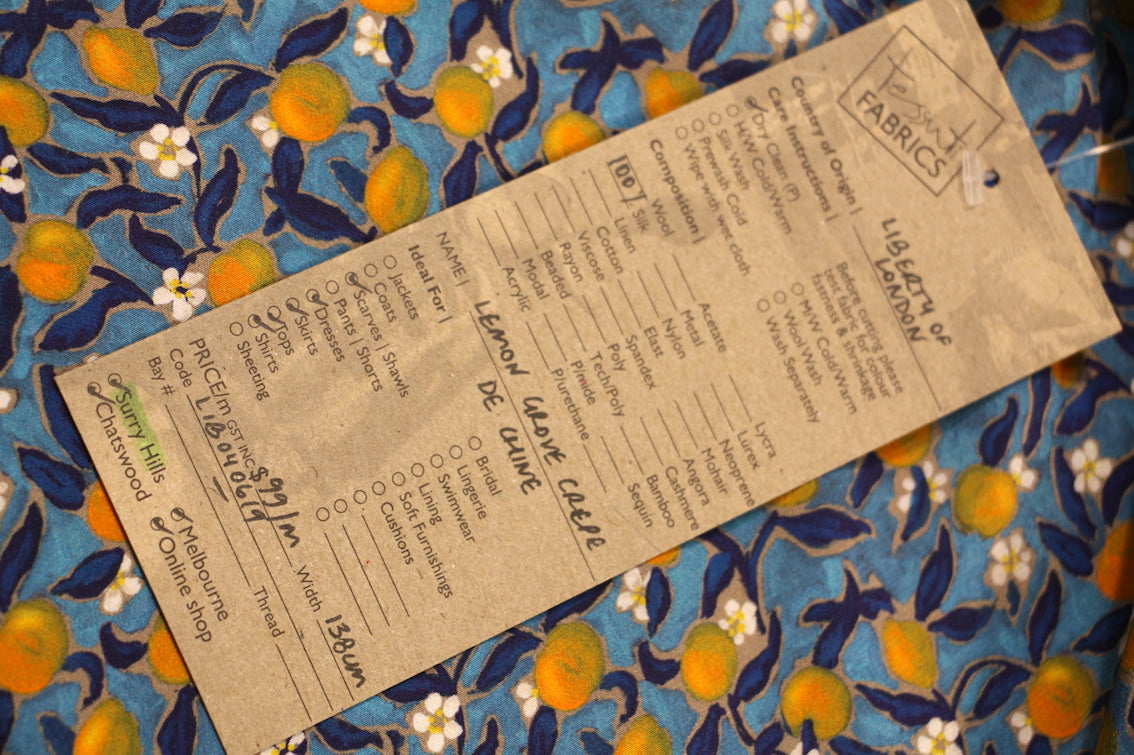 Tessuti
FABRICS
Country of Origin | LIBERTY OF
LONDON
Care Instructions |
Dry Clean (P)
H/W Cold/Warm
Silk Wash
Prewash Cold
Wipe with wet cloth
Before cutting please
test fabric for colour
fastness & shrinkage
M/W Cold/Warm
Wool Wash
Wash Separately
Composition |
Wool
100 Silk
Linen
Cotton
Viscose
Rayon
Beaded
Modal
Acrylic
Acetate
Metal
Nylon
Elast
Spandex
Poly
Tech/Poly
P/mide
P/urethane
Lycra
Lurex
Neoprene
Mohair
Angora
Cashmere
Bamboo
Sequin
NAME | LEMON GROVE CREPE
DE CHINE
Ideal For |
Jackets
Coats
Scarves | Shawls
Pants | Shorts
Dresses
Skirts
Tops
Shirts
Sheeting
Bridal
Lingerie
Swimwear
Lining
Soft Furnishings
Cushions
PRICE/m GST INC $99/m Width 138cm
Code LIB040619
Bay # Thread
Surry Hills
Chatswood
Melbourne
Online shop